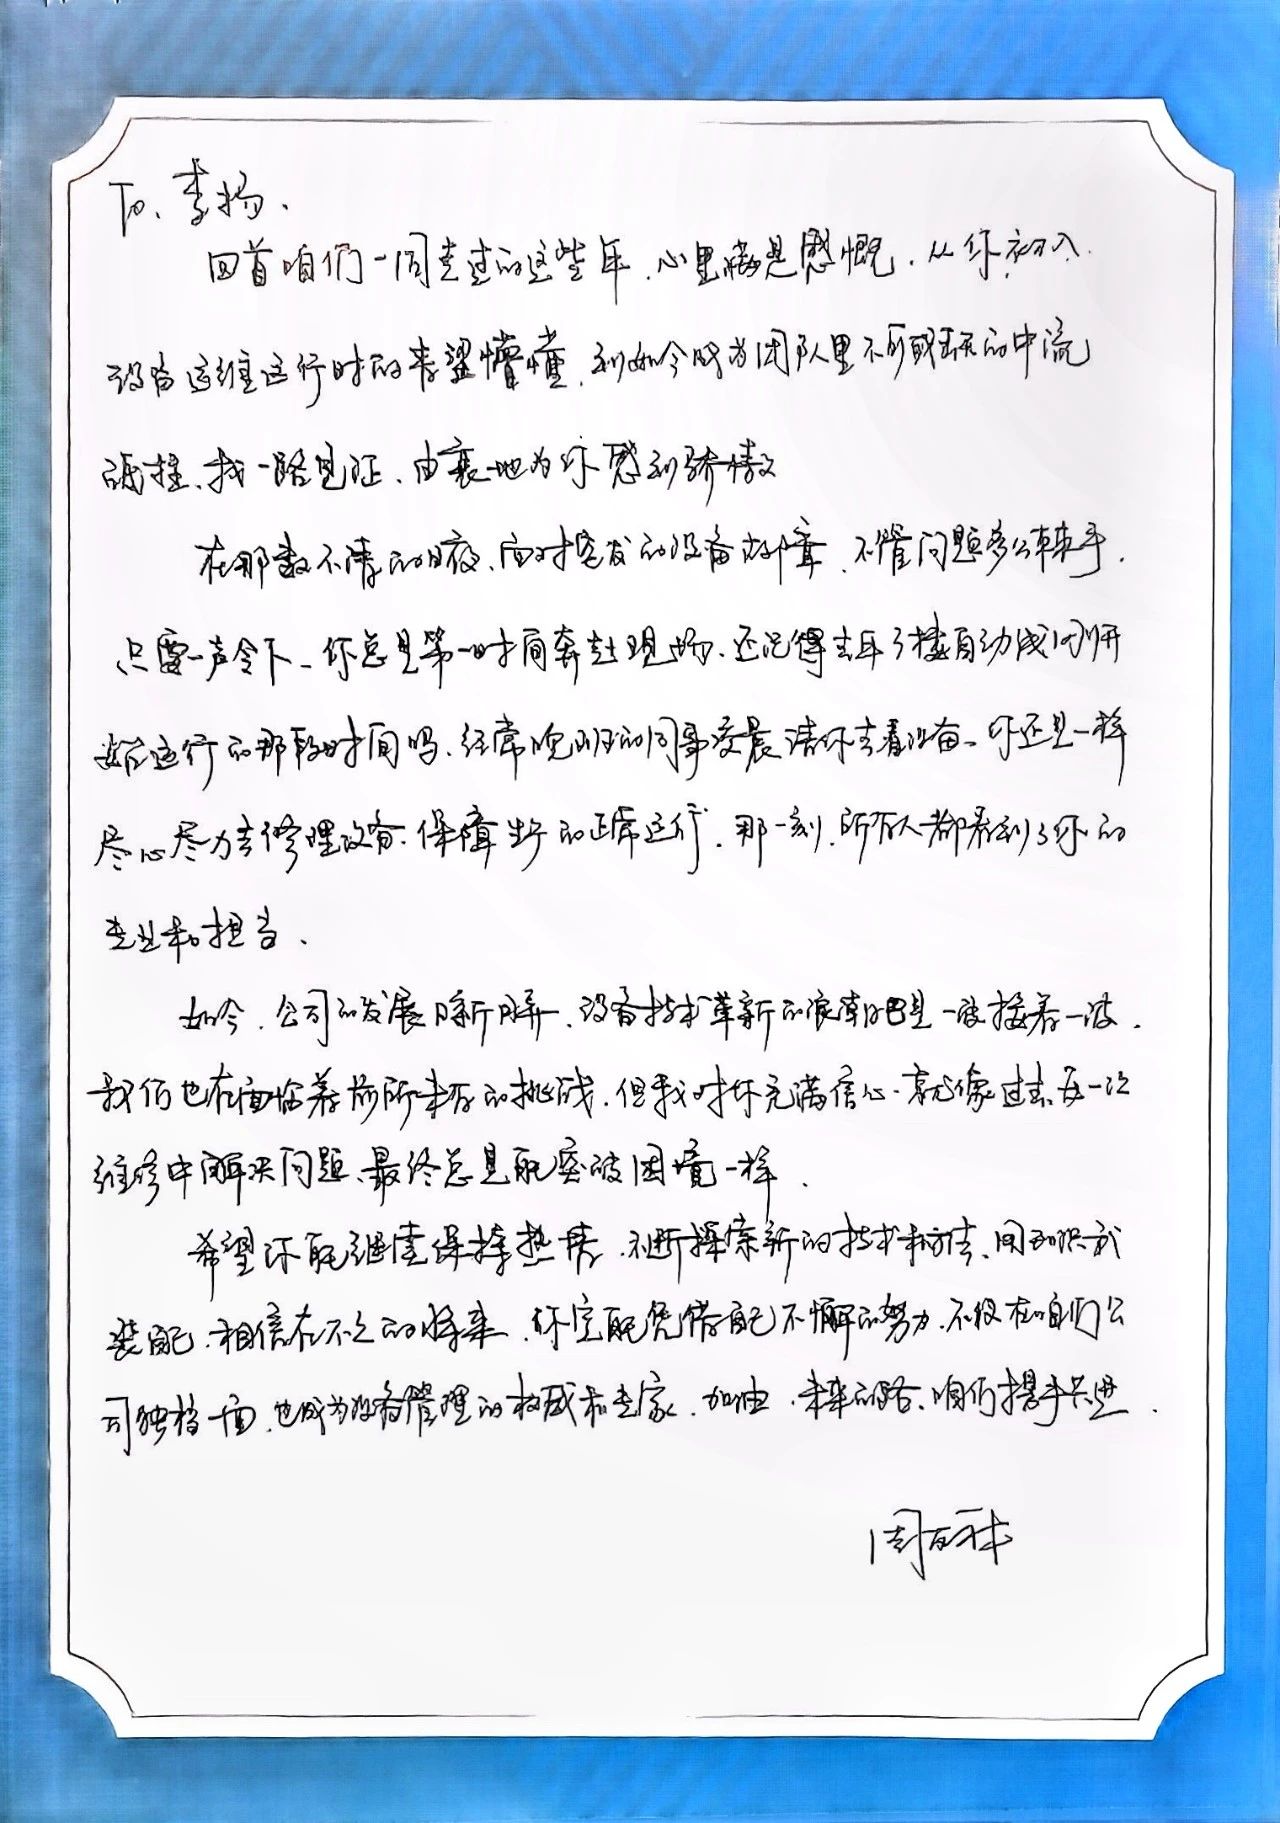 To、李扬、
回首咱们一同走过的这些年、心里满是感慨、从你初入
设备运维这行时的青涩懵懂、到如今成为团队里不可或缺的中流
砥柱、我一路见证、由衷地为你感到骄傲
在那数不清的日夜、面对突发的设备故障、不管问题多么棘手、
只需一声令下、你总是第一时间奔赴现场、还记得去年3楼自动线刚开
始运行的那段时间吗、经常晚班的同事凌晨请你去看设备、你还是一样
尽心尽力去修理设备、保障生产的正常运行、那一刻、所有人都看到了你的
专业和担当、
如今、公司的发展日新月异、设备技术革新的浪潮也是一波接着一波、
我们也在面临着前所未有的挑战、但我对你充满信心、就像过去每一次
维修中解决问题、最终总是能突破困境一样、
希望你能继续保持热情、不断探索新的技术和方法、用知识武
装自己、相信在不久的将来、你定能凭借自己不懈的努力、不仅在咱们公
司独挡一面、也成为设备管理的权威和专家、加油、未来的路、咱们携手共进、
周百祥